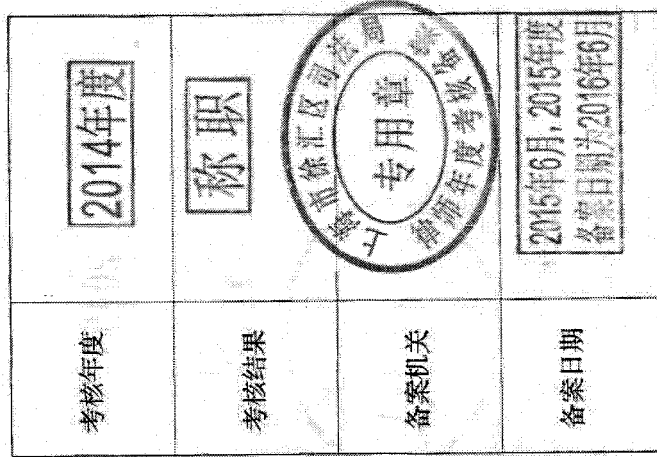 考核年度
2014年度
考核结果
称职
备案机关
上海市徐汇区司法局
专用章
律师年度考核备案
备案日期
2015年6月,2015年度
备案日期为2016年6月